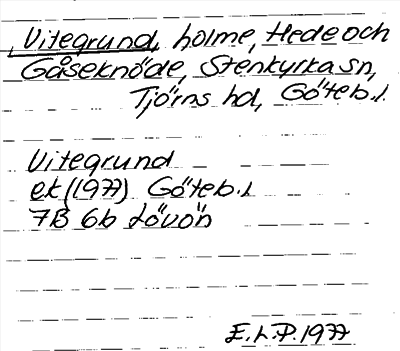 Vitegrund, holme, Hede och
Gåseknöde, Stenkyrka sn,
Tjörns hd, Göteb.l.
Vitegrund
ek (1977) Göteb.l
7B 6b Lövön
E.L.P. 1977